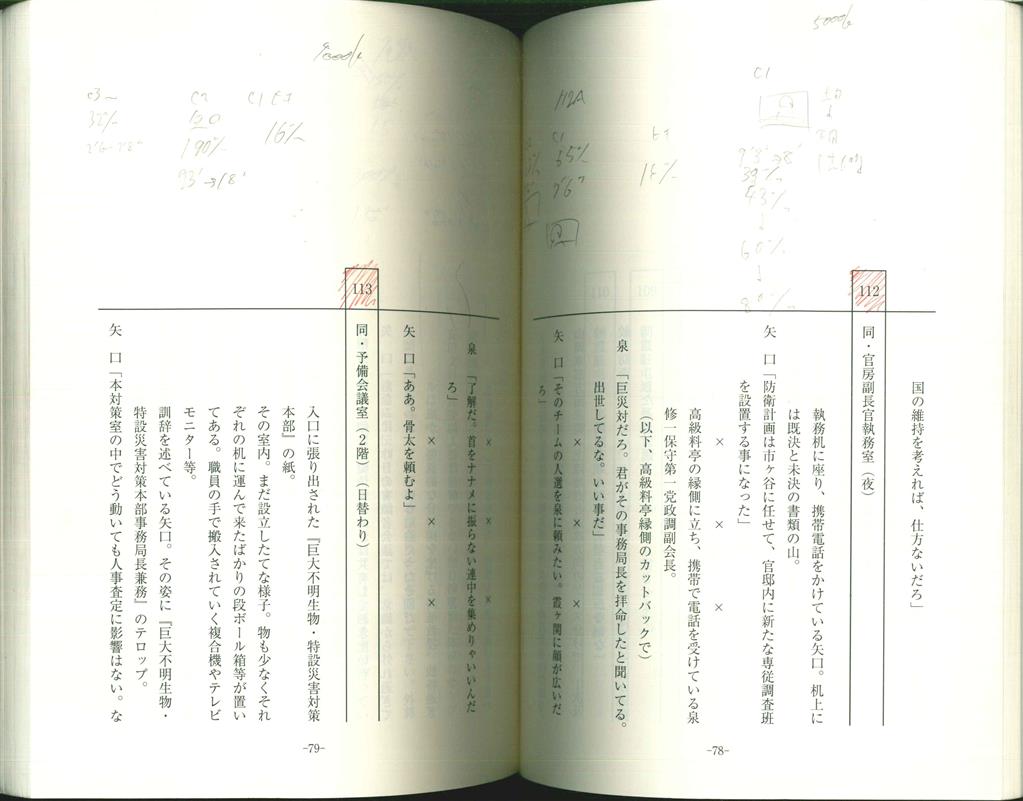 国の維持を考えれば、仕方ないだろ」
112
同・官房副長官執務室（夜）
執務机に座り、携帯電話をかけている矢口。机上に
は既決と未決の書類の山。
矢　口「防衛計画は市ヶ谷に任せて、官邸内に新たな専従調査班
を設置する事になった」
×　×　×
高級料亭の縁側に立ち、携帯で電話を受けている泉
修一保守第一党政調副会長。
（以下、高級料亭縁側のカットバックで）
泉　「巨災対だろ。君がその事務局長を拝命したと聞いてる。
出世してるな。いい事だ」
×　×　×
矢　口「そのチームの人選を泉に頼みたい。霞ヶ関に顔が広いだ
ろ」
-78-
×　×　×
泉　「了解だ。首をナナメに振らない連中を集めりゃいいんだ
ろ」
×　×　×
矢　口「ああ。骨太を頼むよ」
113
同・予備会議室（2階）（日替わり）
入口に張り出された『巨大不明生物・特設災害対策
本部』の紙。
その室内。まだ設立したてな様子。物も少なくそれ
ぞれの机に運んで来たばかりの段ボール箱等が置い
てある。職員の手で搬入されていく複合機やテレビ
モニター等。
訓辞を述べている矢口。その姿に『巨大不明生物・
特設災害対策本部事務局長兼務』のテロップ。
矢　口「本対策室の中でどう動いても人事査定に影響はない。な
-79-
C1
112A
C1
55%
9'6"
39%
43%
60%
80%
C3～
32%
C2
120
190%
C1
16%